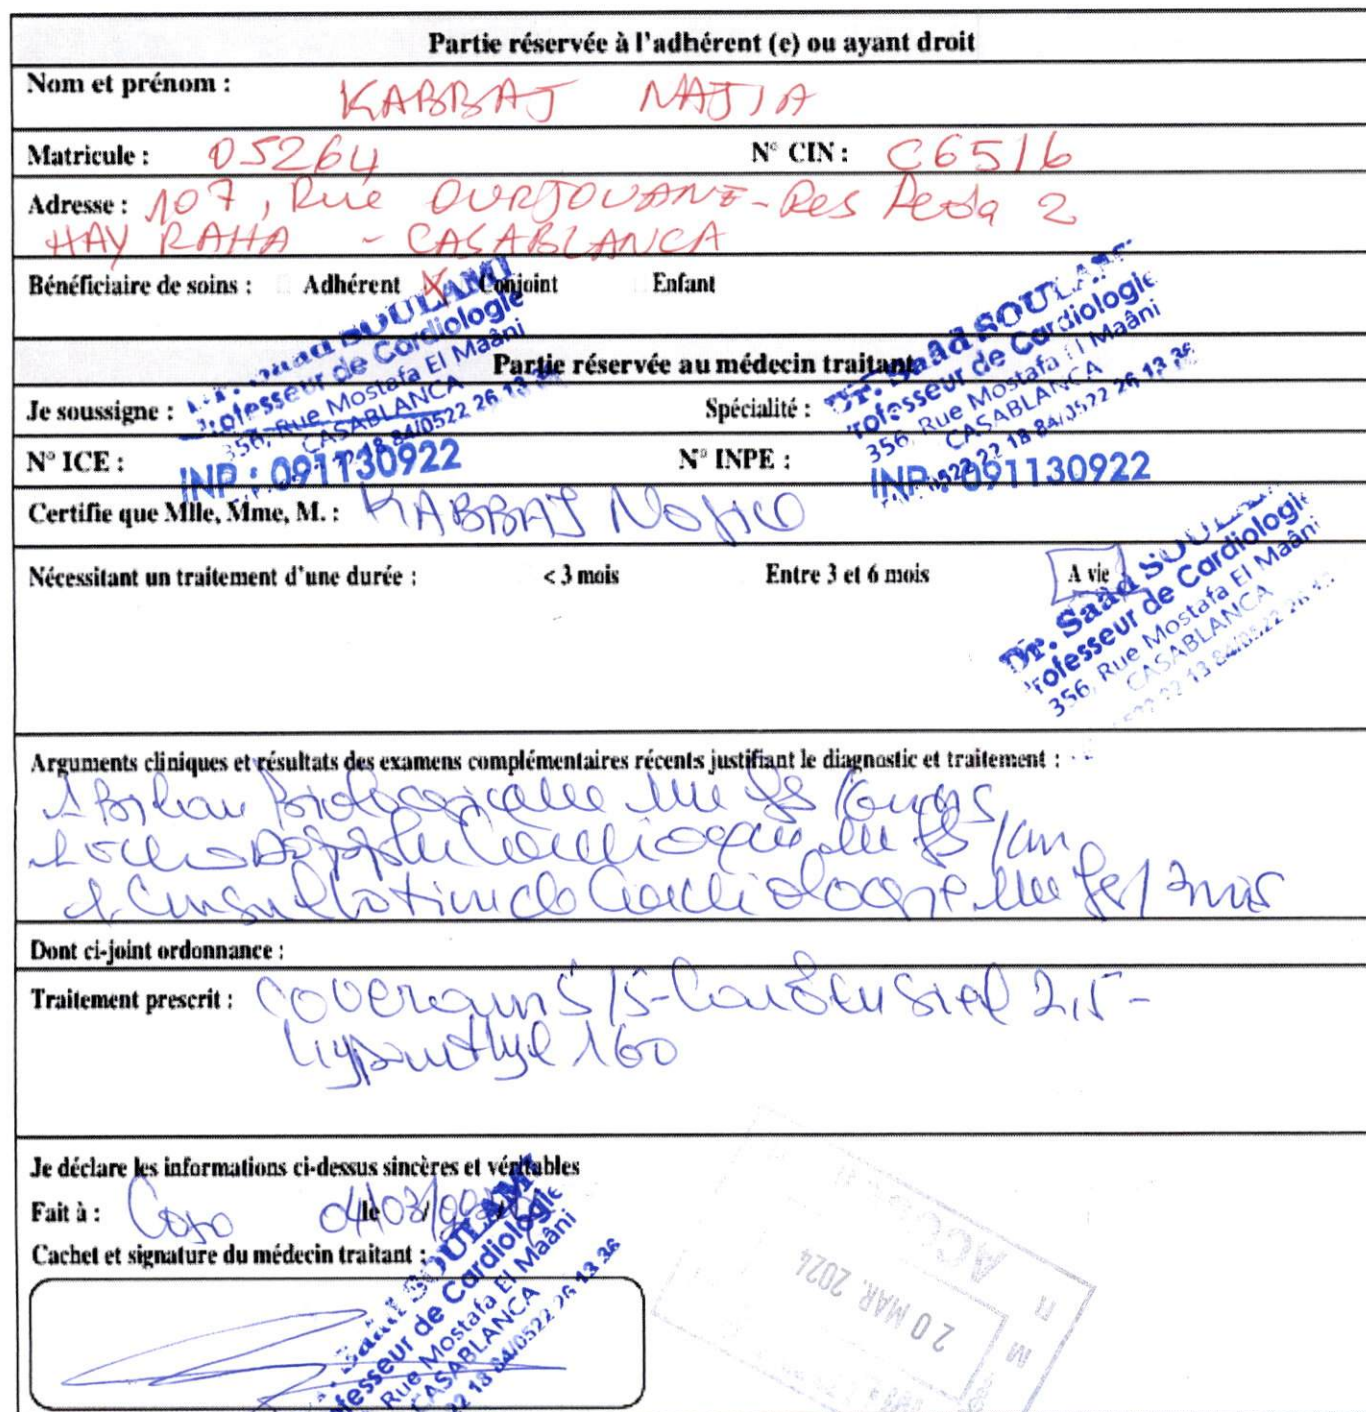 Partie réservée à l'adhérent (e) ou ayant droit
Nom et prénom : KABBAJ NAJIA
Matricule : 05264 N° CIN : C6516
Adresse : 107, Rue OURJOUANE - Res
HAY RAHA - CASABLANCA
Bénéficiaire de soins : Adhérent X Conjoint Enfant
Dr. Saad SOULAMI
Professeur de Cardiologie
356, Rue Mostafa El Maâni
CASABLANCA
Dr. Saad SOULAMI
Professeur de Cardiologie
356, Rue Mostafa El Maâni
CASABLANCA
0522 22 18 84/0522 26 13 36
Partie réservée au médecin traitant
Je soussigne : Spécialité :
N° ICE : INP : 091130922 N° INPE : INP : 091130922
Certifie que Mlle, Mme, M. : KABBAJ Najia
Nécessitant un traitement d'une durée : < 3 mois Entre 3 et 6 mois A vie
Dr. Saad SOULAMI
Professeur de Cardiologie
356, Rue Mostafa El Maâni
CASABLANCA
Arguments cliniques et résultats des examens complémentaires récents justifiant le diagnostic et traitement :
1 Bilan Biologique une fs /
1 echo Doppler Cardiaque une fs / an
1 Consultation de Cardiologie une fs / 3 mois
Dont ci-joint ordonnance :
Traitement prescrit : Coveram 5/5 - Cardensiel 2,5 -
Lipanthyl 160
Je déclare les informations ci-dessus sincères et véritables
Fait à : Casa le 04/03/
Cachet et signature du médecin traitant :
Saad SOULAMI
Professeur de Cardiologie
Rue Mostafa El Maâni
CASABLANCA
22 18 84/0522 26 13 36
20 MAR. 2024